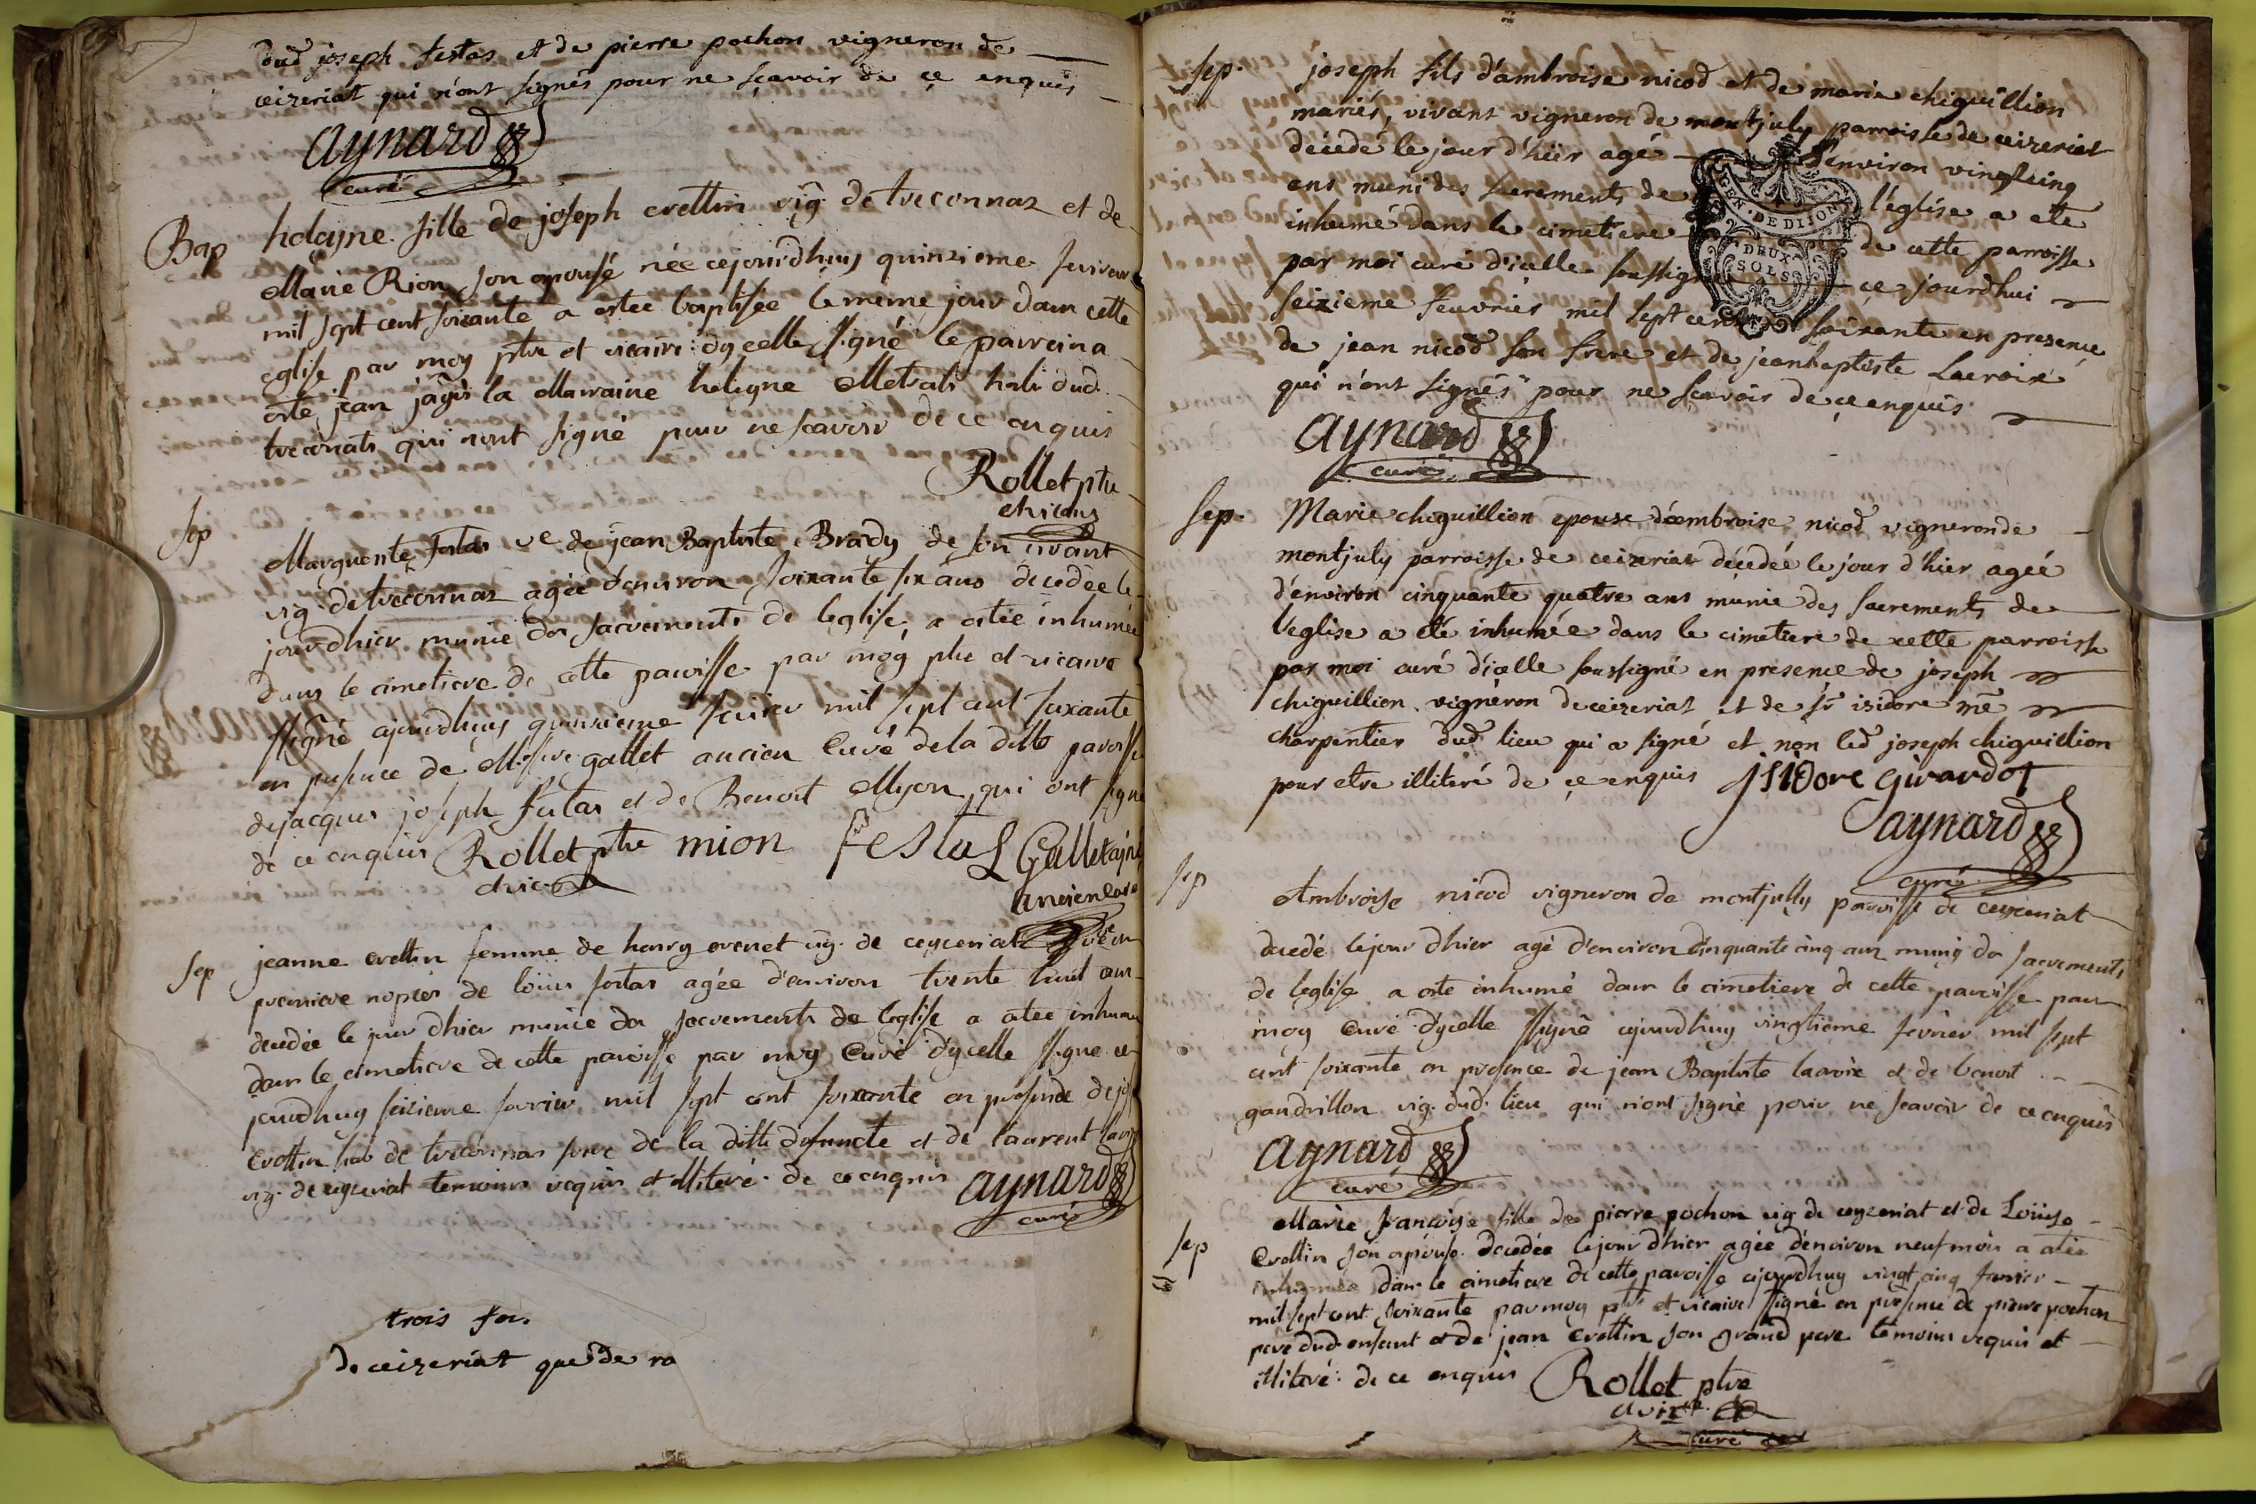 dud joseph festas et de pierre pochon vigneron de
ceizeriat qui n'ont signés pour ne sçavoir de ce enquis
aynard
curé
Bap
fille de joseph evettin vig. de treconnaz et de
Marie Rion son epouse née cejourdhuy quinzieme
mil sept cent soixante a estee baptisée le meme jour dans cette
eglise par moy ptre et vicaire dycelle ssigné le parrein a
esté jean la Marraine dud.
treconats qui nont signé pour ne scavoir de ce enquis
Rollet ptre
et vicaire
Sep
Marguerite festas ve de jean Baptiste Brady de son vivant
vig. de treconnaz agée d'environ soixante six ans decedée le
jour dhier munie des sacrements de leglise, a estée inhumée
dans le cimetiere de cette paroisse par moy ptre et vicaire
ssigné cejourdhuy quinzieme fevrier mil sept cent soixante
en presence de Messire gallet ancien Curé de la ditte paroisse
de jacques joseph festas et de Benoit Myon qui ont signé
de ce enquis Rollet ptre mion festas Gallet
et vic.
ancien curé
Sep
jeanne evettin femme de henry evenet vig. de ceyzeriat
premiere nopces de loüis festas agée d'environ trente huit ans
decedée le jour dhier munie des sacrements de leglise a estée inhumée
dans le cimetiere de cette paroisse par moy Curé dycelle ssigne ce
jourdhuy seizieme fevrier mil sept cent soixante en presence de
Evettin de treconnas frere de la ditte defuncte et de laurent
vig. de ceyzeriat temoins requis et illiteré. de ce enquis aynard
curé
trois fev.
de ceizeriat que de ra
Sep.
joseph fils d'ambroise nicod et de marie chiguillion
mariés, vivant vigneron de montjuly parroisse de ceizeriat
décédé le jour d'hiër agé d'environ vingtcinq
ans muni des sacrements de l'église a eté
inhumé dans le cimetiere de cette parroisse
par moi curé d'icelle soussigné ce jourdhui
seizieme feuvrier mil sept cent soixante en presence
de jean nicod son frere et de jeanbaptiste Lacroix
qui n'ont signés pour ne sçavoir de ce enquis
GEN. DE DIJON
DEUX
SOLS
aynard
curé
Sep.
Marie chiguillion epouse d'ambroise nicod vigneron de
montjuly parroisse de ceizeriat décédée le jour d'hier agée
d'environ cinquante quatre ans munie des sacrements de
l'eglise a eté inhumée dans le cimetiere de cette parroisse
par moi curé d'icelle soussigné en presence de joseph
chiguillion vigneron de ceizeriat et de sr isidore me
charpentier dud lieu qui a signé et non led joseph chiguillion
pour etre illiteré de ce enquis jsidore girardot
aynard
curé
Sep
Ambroise nicod vigneron de montjully paroisse de ceyzeriat
decedé lejour dhier agé d'environ cinquante cinq ans muny des sacrements
de leglise a esté inhumé dans le cimetiere de cette paroisse par
moy Curé dycelle ssigné cejourdhuy vingtieme fevrier mil sept
cent soixante en presence de jean Baptiste lacroix et de benoit
gandrillon vig. dud. lieu qui n'ont signé pour ne scavoir de ce enquis
aynard
curé
Sep
Marie françoise fille de pierre pochon vig. de ceyzeriat et de Loüise
Evettin son epouse decedée lejour dhier agée denviron neuf mois a estée
inhumée dans le cimetiere de cette paroisse cejourdhuy vingt cinq fevrier
mil sept cent soixante par moy ptre et vicaire ssigné en presence de pierre pochon
pere dud. enfant et de jean Evettin son grand pere temoins requis et
illiteré. de ce enquis Rollet ptre
et vic.
curé